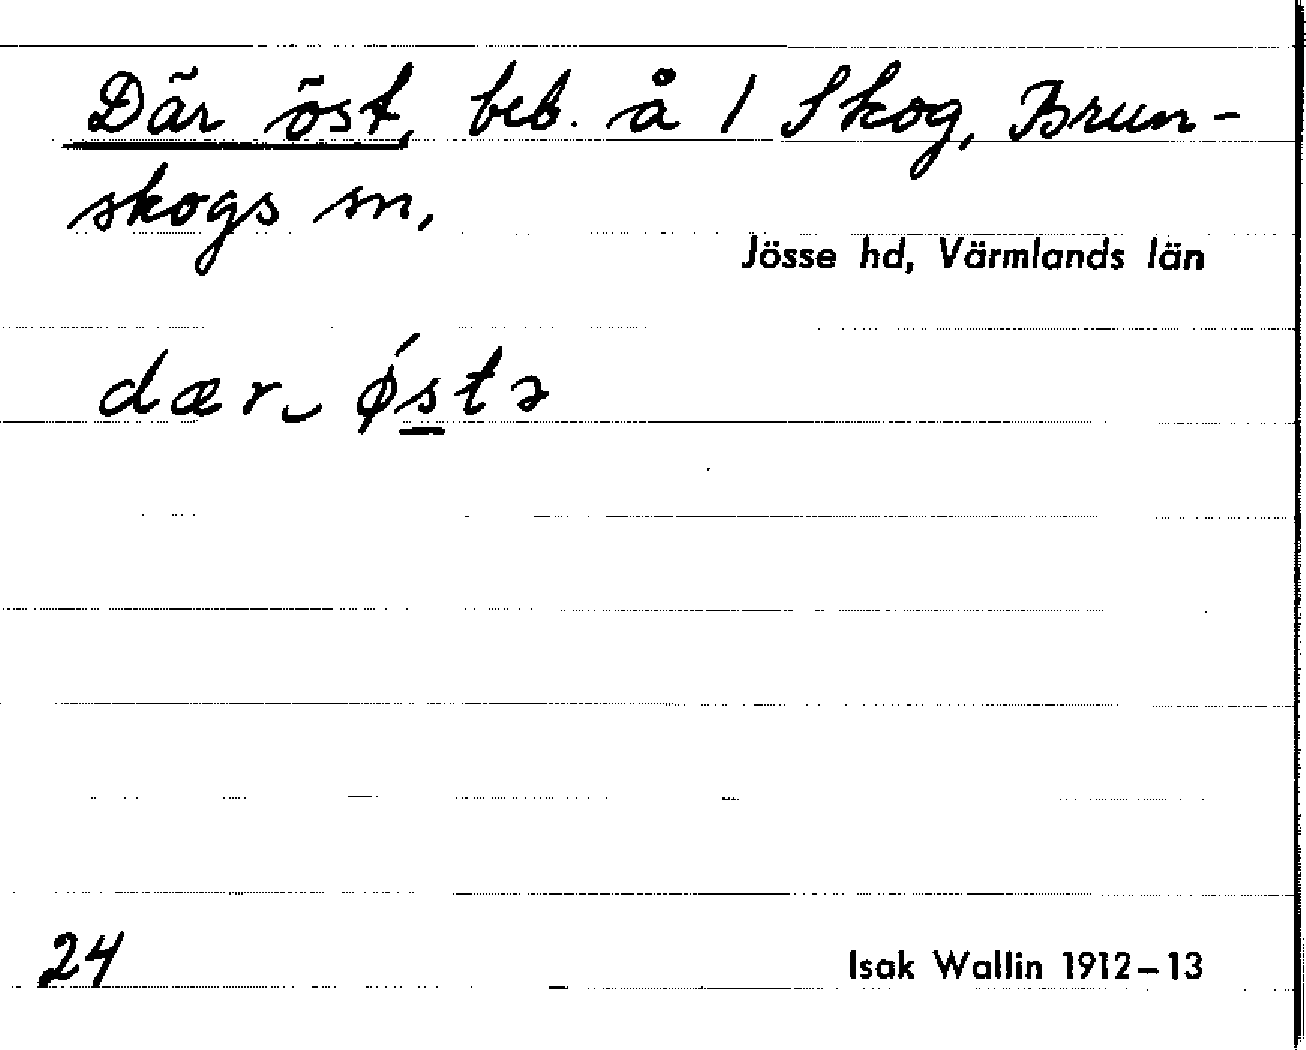 Där öst, beb. å 1 Skog, Brun-
skogs sn,
Jösse hd, Värmlands län
dær ‿ ǿstə
24
Isak Wallin 1912–13